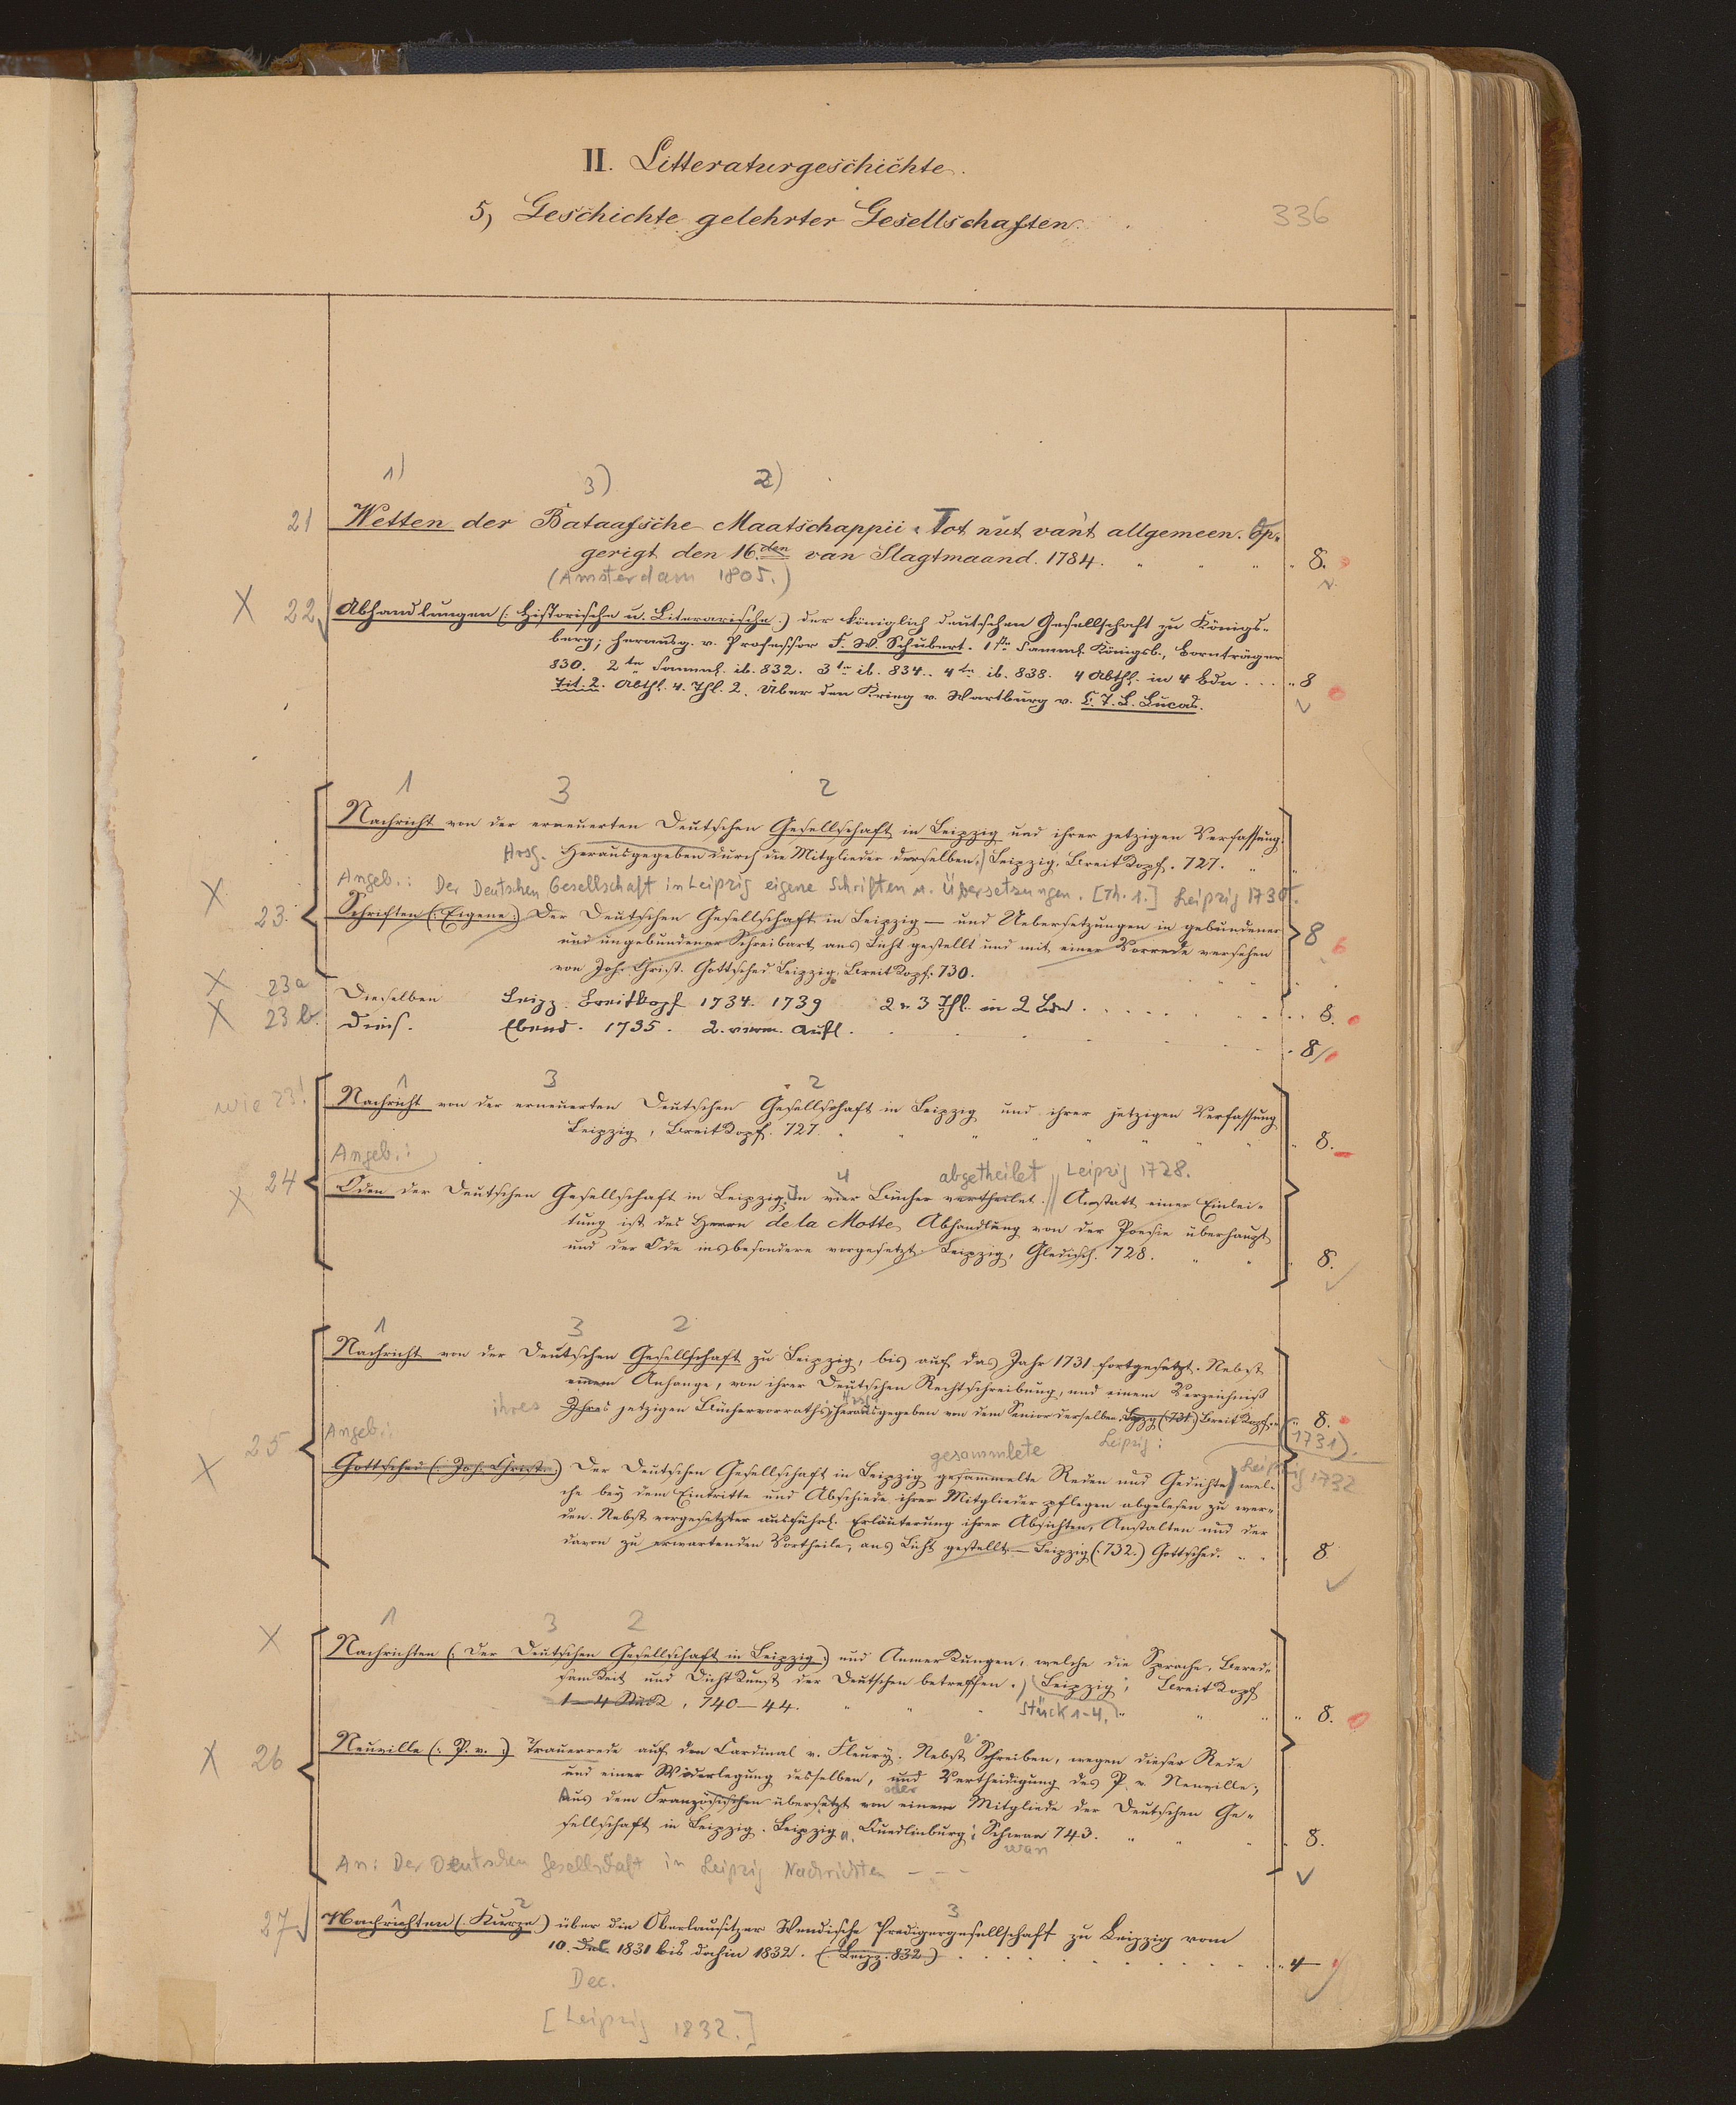 II. Litteraturgeschichte.
5, Geschichte gelehrter Gesellschaften.
336
1) 3) 2)
21 Wetten der Bataafsche Maatschappii: Tot nut van't allgemeen. Op-
gerigt den 16den van Slagtmaand. 1784. 8.
(Amsterdam 1805.)
X 22 Abhandlungen (: Historische u. Literarische :) der königlich deutschen Gesellschaft zu Königs-
berg; herausg. v. Professor F. W. Schubert. 1te Samml. Königsb., Bornträger
830. 2te Samml. ib. 832. 3te ib. 834. 4te ib. 838. 4 Abthl. in 4 Bdn . . . 8
Tit. 2. Abthl. 4. Thl. 2. Über den Krieg v. Wartburg v. C. T. L. Lucas.
1 3 2
Nachricht von der erneuerten Deutschen Gesellschaft in Leipzig und ihrer jetzigen Verfassung.
Hrsg. Herausgegeben durch die Mitglieder derselben. Leipzig, Breitkopf. 727.
Angeb.: Der Deutschen Gesellschaft in Leipzig eigene Schriften u. Übersetzungen. [Th. 1.] Leipzig 1730.
X 23. Schriften (: Eigene :) Der Deutschen Gesellschaft in Leipzig — und Uebersetzungen in gebundener
und ungebundener Schreibart ans Licht gestellt und mit einer Vorrede versehen 8
von Joh. Christ. Gottsched Leipzig. Breitkopf. 730.
X 23a Dieselben Leipz. Breitkopf 1734. 1739 2. 3 Thl. in 2 Bdn . . . . 8.
X 23b. Dies. Ebend. 1735. 2. verm. Aufl. 8
wie 23! 1 3 2
Nachricht von der erneuerten Deutschen Gesellschaft in Leipzig und ihrer jetzigen Verfassung
Leipzig, Breitkopf. 727. 8.
Angeb.: 4 abgetheilet Leipzig 1728.
X 24 Oden der Deutschen Gesellschaft in Leipzig, In vier Bücher vertheilet. Anstatt einer Einlei-
tung ist des Herrn de la Motte Abhandlung von der Poesie überhaupt
und der Ode insbesondere vorgesetzt. Leipzig, Gleditsch. 728. 8.
1 3 2
Nachricht von der Deutschen Gesellschaft zu Leipzig, bis auf das Jahr 1731 fortgesetzt. Nebst
einem Anhange, von ihrer Deutschen Rechtschreibung, und einem Verzeichniß
ihres Ihres jetzigen Büchervorraths, herausgegeben von dem Senior derselben. Lpzg (731.) Breitkopf. 8.
Angeb.: gesammlete Leipzig: 1731).
X 25 Gottsched (: Joh. Christ. :) Der Deutschen Gesellschaft in Leipzig gesammelte Reden und Gedichte, wel-
Leipzig 1732
che bey dem Eintritte und Abschiede ihrer Mitglieder pflegen abgelesen zu wer-
den. Nebst vorgesetzter ausführl. Erläuterung ihrer Absichten, Anstalten und der
davon zu erwartenden Vortheile, ans Licht gestellt — Leipzig (: 732.) Gottsched. 8
1 3 2
X Nachrichten (: Der Deutschen Gesellschaft in Leipzig :) und Anmerkungen, welche die Sprache, Bered-
samkeit und Dichtkunst der Deutschen betreffen. Leipzig, Breitkopf
1—4 Stück, 740—44. Stück 1-4. 8.
X 26 Neuville (: P. v. :) Trauerrede auf den Cardinal v. Fleury. Nebst Schreiben, wegen dieser Rede
und einer Widerlegung desselben, und Vertheidigung des P. v. Neuville;
oder
Aus dem Französischen übersetzt von einem Mitgliede der Deutschen Ge-
sellschaft in Leipzig. Leipzig u. Quedlinburg: Schwan 743. 8.
wan
An: Der Deutschen Gesellschaft in Leipzig Nachrichten - - -
1 2 3
27 Nachrichten (: Kurze) über die Oberlausitzer Wendische Predigergesellschaft zu Leipzig vom
10. Dec. 1831 bis dahin 1832. (: Leipz. 832) . . . . 4
Dec.
[Leipzig 1832.]